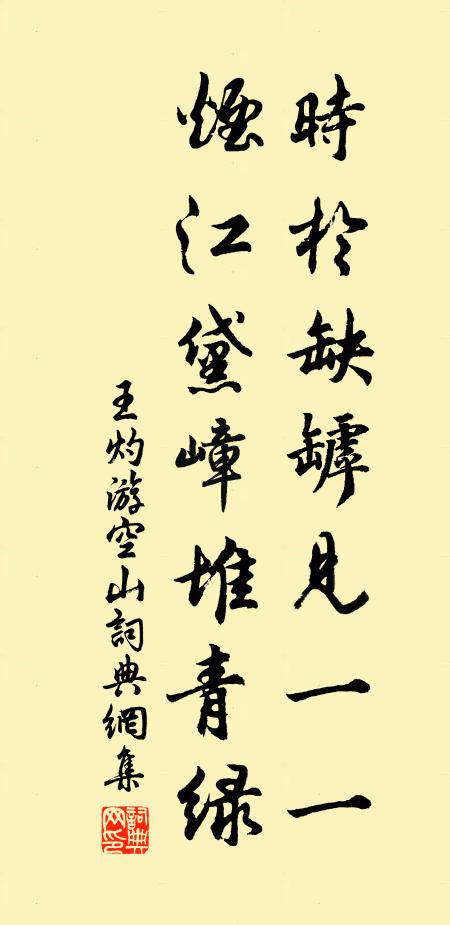 時於缺罅見一一
煙江黛嶂堆青绿
王灼游空山詞典網集
詞典网印